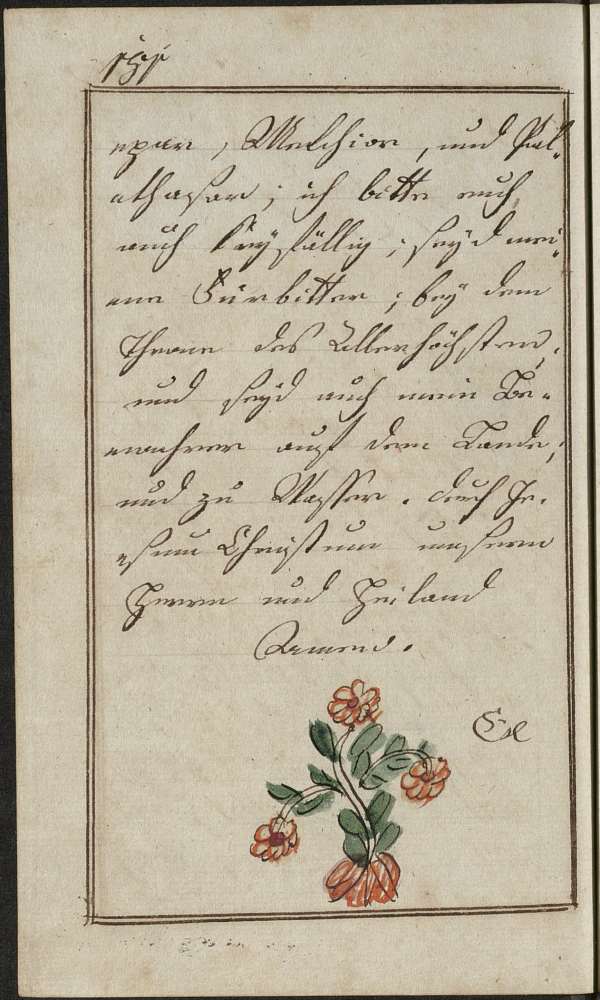 151
spar, Melchior, und Bal„
athasar; ich bitte euch
auch kniefällig; seyd mei„
ene Fürbitter; bey dem
Throne des Allerhöchsten,
und seyd auch mein Be„
ewahrer auf dem Lande,
und zu Wasser. durch Je„
esum Christum unsern
Herrn und Heiland
Amen.